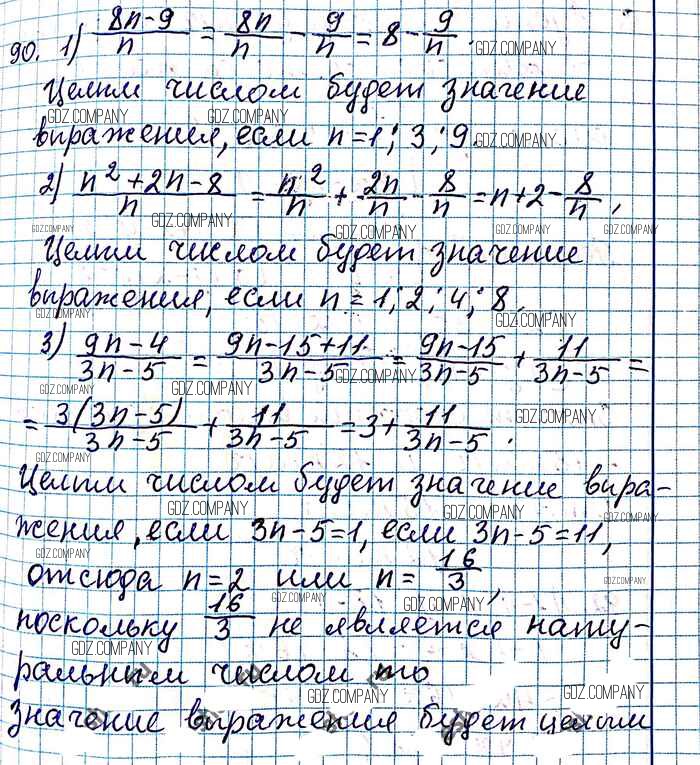 90. 1) (8n-9)/n = 8n/n - 9/n = 8 - 9/n.
GDZ.COMPANY
Целым числом будет значение
GDZ.COMPANY GDZ.COMPANY
выражения, если n=1; 3; 9.
GDZ.COMPANY
2) (n²+2n-8)/n = n²/n + 2n/n - 8/n = n+2 - 8/n,
GDZ.COMPANY GDZ.COMPANY GDZ.COMPANY GDZ.COMPANY GDZ.COMPANY
Целым числом будет значение
выражения, если n = 1; 2; 4; 8.
GDZ.COMPANY GDZ.COMPANY
3) (9n-4)/(3n-5) = (9n-15+11)/(3n-5) = (9n-15)/(3n-5) + 11/(3n-5) =
GDZ.COMPANY GDZ.COMPANY GDZ.COMPANY
= 3(3n-5)/(3n-5) + 11/(3n-5) = 3 + 11/(3n-5).
GDZ.COMPANY GDZ.COMPANY
Целым числом будет значение выра-
GDZ.COMPANY GDZ.COMPANY GDZ.COMPANY
жения, если 3n-5=1, если 3n-5=11,
GDZ.COMPANY GDZ.COMPANY
отсюда n=2 или n= 16/3,
GDZ.COMPANY GDZ.COMPANY
поскольку 16/3 не является нату-
GDZ.COMPANY
ральным числом то
GDZ.COMPANY GDZ.COMPANY
значение выражения будет целым